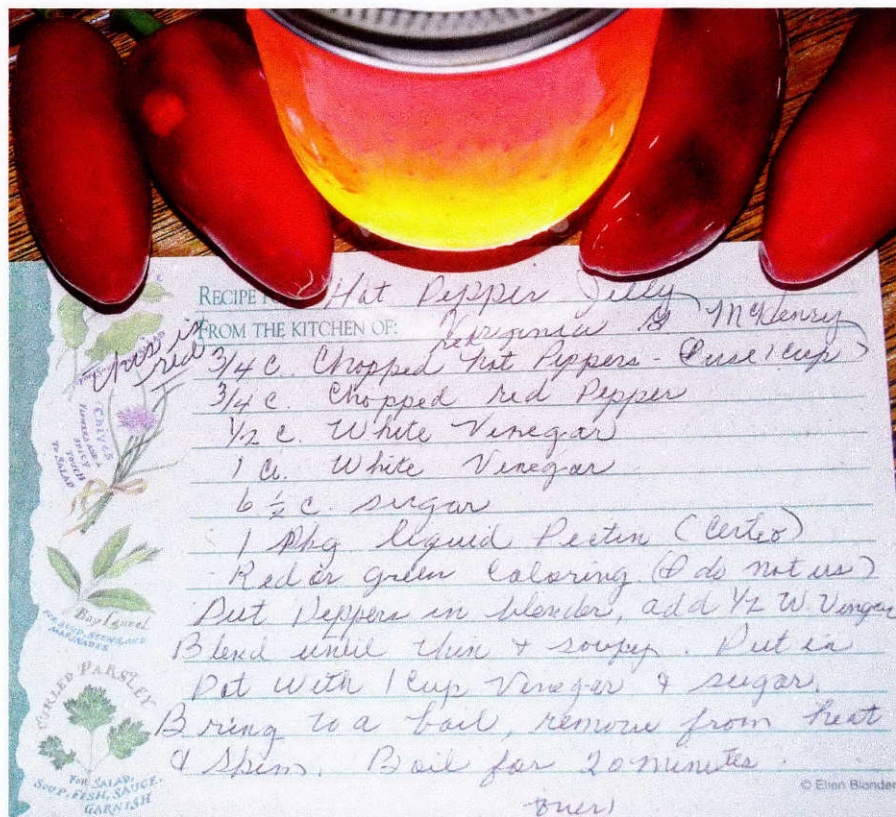 RECIPE Hot Pepper Jelly
FROM THE KITCHEN OF: Virginia G McHenry
this is red
red
3/4 c. Chopped Hot Peppers - (I use 1 cup)
3/4 c. Chopped red Pepper
1/2 c. White Vinegar
1 c. White Vinegar
6 1/2 c. sugar
1 Pkg liquid Pectin (Certeo)
Red or green Coloring. (I do not us)
Put Peppers in blender, add 1/2 W. Vinegar
Blend until thin & soupy. Put in
Pot with 1 cup Vinegar & sugar.
Bring to a boil, remove from heat
& skim. Boil for 20 minutes.
over)
CHIVES
TO SALAD
Bay Laurel
FOR SOUP, STEWS, AND
MARINADES
CURLED PARSLEY
FOR SALAD,
SOUP, FISH, SAUCE,
GARNISH
© Ellen Blonder